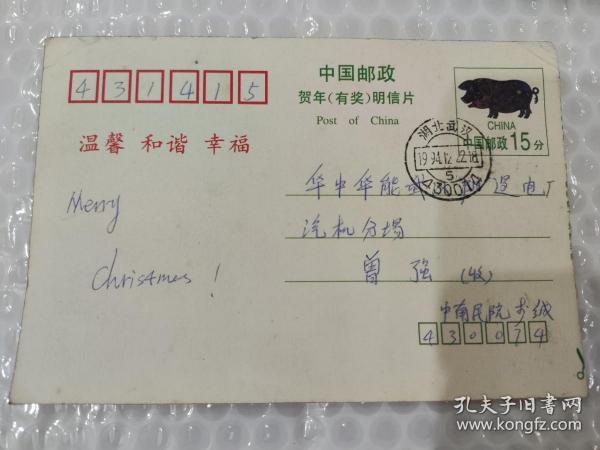 431415
中国邮政
贺年(有奖)明信片
Post of China
CHINA
中国邮政15分
温馨 和谐 幸福
湖北武汉
1994.12.22.18
华中华能
汽机分场
曾强(收)
Merry
Christmas!
中南民院
430074
孔夫子旧书网
www.kongfz.com